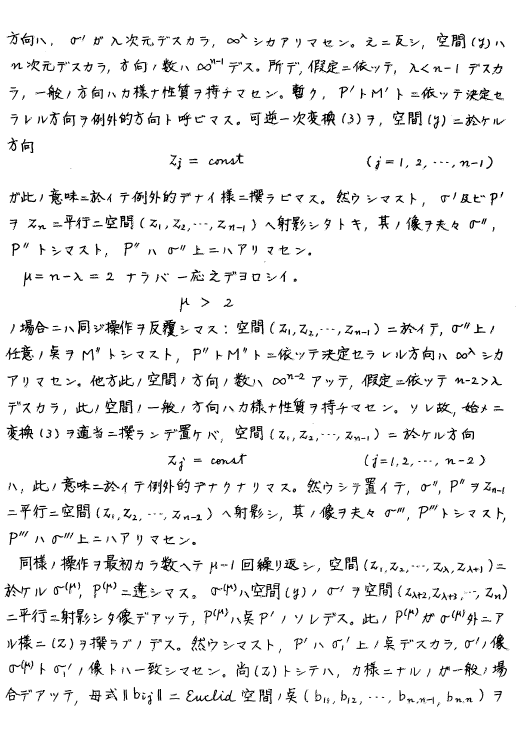 方向ハ, σ′ ガ λ次元デスカラ, ∞^λ シカアリマセン。之ニ反シ, 空間(y)ハ
n次元デスカラ, 方向ノ数ハ ∞^{n-1} デス。所デ, 假定ニ依ッテ, λ<n-1 デスカ
ラ, 一般ノ方向ハカ様ナ性質ヲ持チマセン。暫ク, P′トM′トニ依ッテ決定セ
ラレル方向ヲ例外的方向ト呼ビマス。可逆一次変換(3)ヲ, 空間(y)ニ於ケル
方向
Z_j = const (j=1, 2, …, n-1)
ガ此ノ意味ニ於イテ例外的デナイ様ニ撰ラビマス。然ウシマスト, σ′及ビP′
ヲ Z_nニ平行ニ空間(Z_1, Z_2, …, Z_{n-1})へ射影シタトキ, 其ノ像ヲ夫々 σ″,
P″ トシマスト, P″ ハ σ″上ニハアリマセン。
μ=n-λ=2 ナラバ 一応之デヨロシイ。
μ > 2
ノ場合ニハ同ジ操作ヲ反覆シマス: 空間(Z_1, Z_2, …, Z_{n-1})ニ於イテ, σ″上ノ
任意ノ点ヲ M″トシマスト, P″トM″トニ依ッテ決定セラレル方向ハ ∞^λ シカ
アリマセン。他方此ノ空間ノ方向ノ数ハ ∞^{n-2} アッテ, 假定ニ依ッテ n-2>λ
デスカラ, 此ノ空間ノ一般ノ方向ハカ様ナ性質ヲ持チマセン。ソレ故, 始メニ
変換(3)ヲ適当ニ撰ランデ置ケバ, 空間(Z_1, Z_2, …, Z_{n-1})ニ於ケル方向
Z_j = const (j=1, 2, …, n-2)
ハ, 此ノ意味ニ於イテ例外的デナクナリマス。然ウシテ置イテ, σ″, P″ヲZ_{n-1}
ニ平行ニ空間(Z_1, Z_2, …, Z_{n-2})へ射影シ, 其ノ像ヲ夫々 σ‴, P‴トシマスト,
P‴ハ σ‴上ニハアリマセン。
同様ノ操作ヲ最初カラ数ヘテ μ-1 回繰リ返シ, 空間(Z_1, Z_2, …, Z_λ, Z_{λ+1})ニ
於ケル σ^{(μ)}, P^{(μ)}ニ達シマス。σ^{(μ)}ハ空間(y)ノ σ′ヲ空間(Z_{λ+2}, Z_{λ+3}, …, Z_n)
ニ平行ニ射影シタ像デアッテ, P^{(μ)}ハ点P′ノソレデス。此ノP^{(μ)}ガσ^{(μ)}外ニア
ル様ニ(Z)ヲ撰ラブノデス。然ウシマスト, P′ハσ_1′上ノ点デスカラ, σ′ノ像
σ^{(μ)}トσ_1′ノ像トハ一致シマセン。尚(Z)トシテハ, カ様ニナルノガ一般ノ場
合デアッテ, 母式‖b_{ij}‖ニ Euclid 空間ノ点(b_{11}, b_{12}, …, b_{n,n-1}, b_{n,n})ヲ